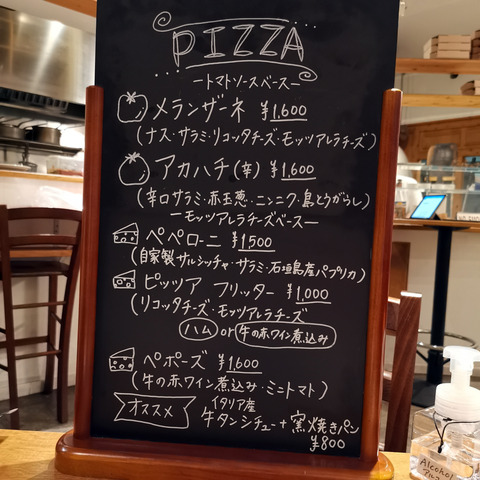 PIZZA
ートマトソースベースー
メランザーネ ¥1,600
(ナス・サラミ・リコッタチーズ・モッツアレラチーズ)
アカハチ(辛) ¥1,600
(辛口サラミ・赤玉葱・ニンニク・島とうがらし)
ーモッツアレラチーズベースー
ペペローニ ¥1500
(自家製サルシッチャ・サラミ・石垣島産パプリカ)
ピッツア フリッター ¥1,000
(リコッタチーズ・モッツアレラチーズ
ハム or 牛の赤ワイン煮込み
ペポーズ ¥1,600
(牛の赤ワイン煮込み・ミニトマト)
オススメ
イタリア産
牛タンシチュー+窯焼きパン
¥800
Alcohol